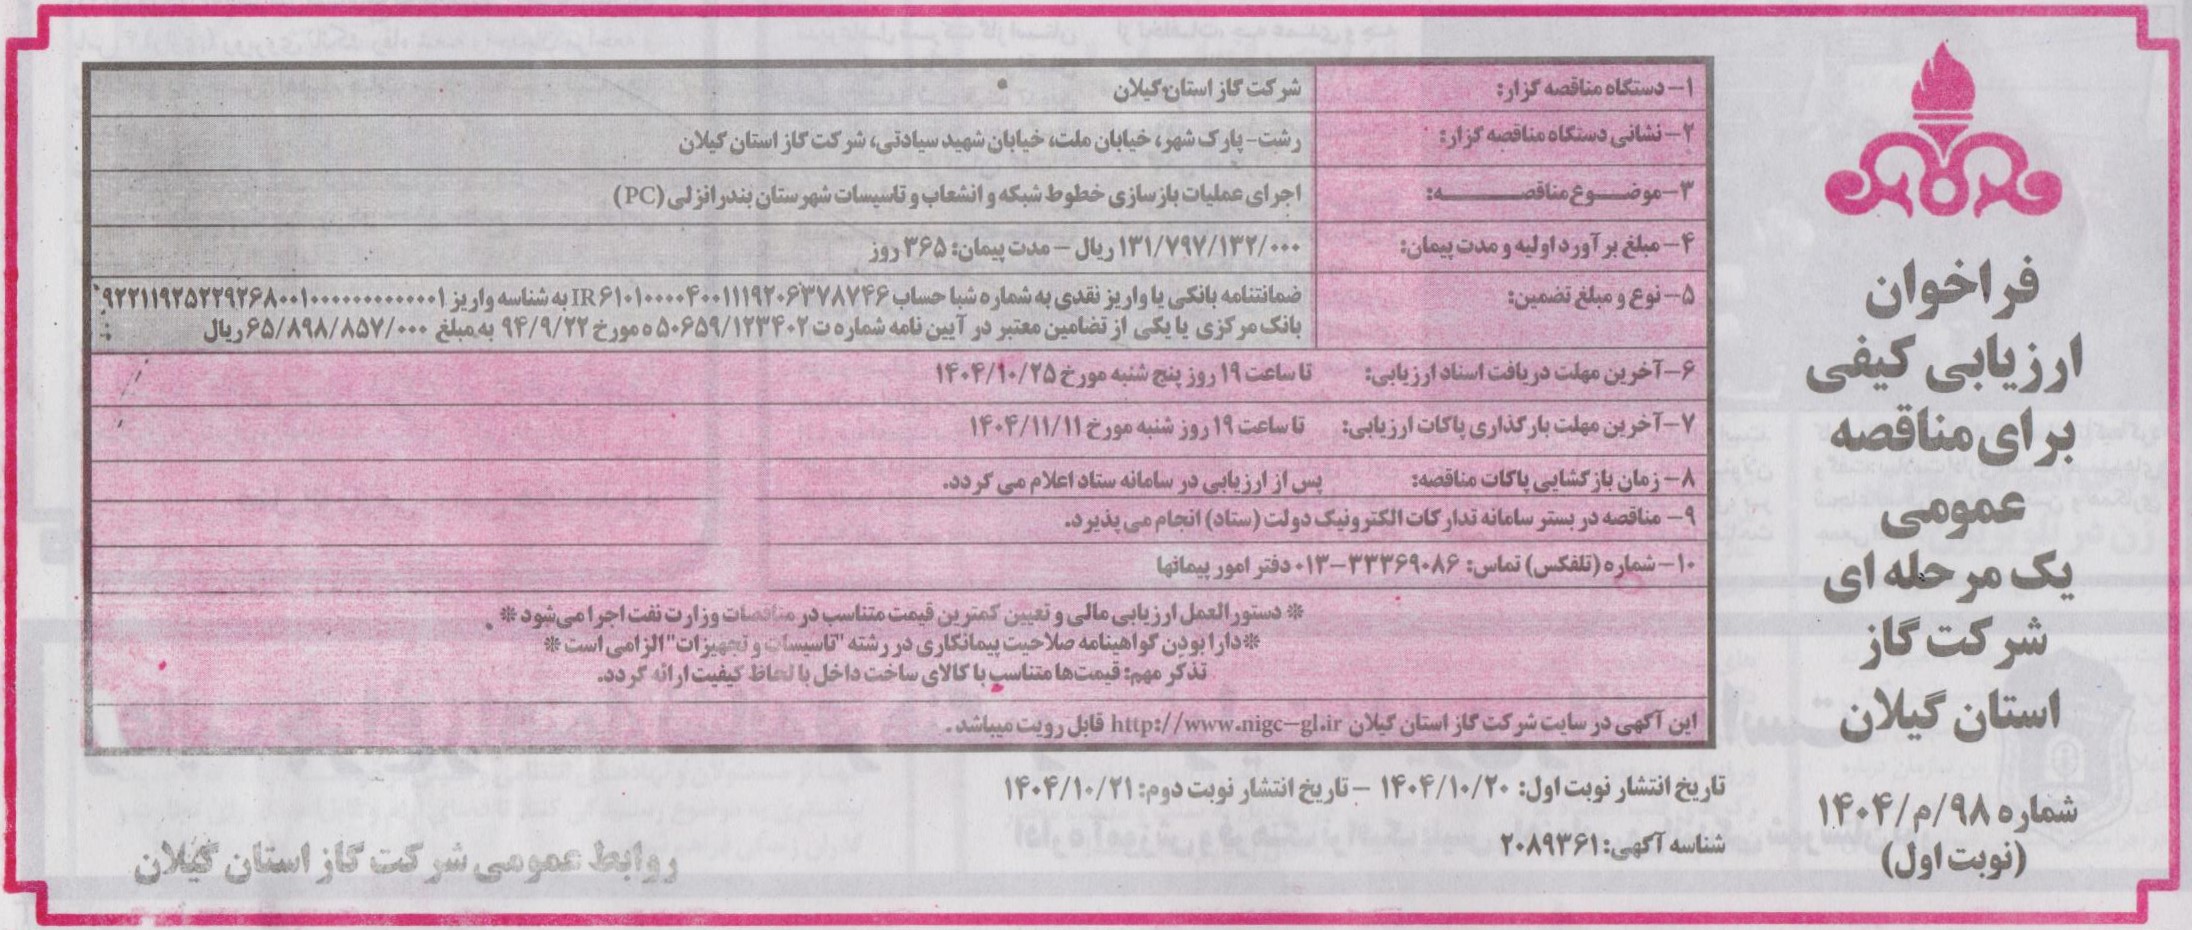 فراخوان
ارزیابی کیفی
برای مناقصه
عمومی
یک مرحله ای
شرکت گاز
استان گیلان
شماره ۹۸/م/۱۴۰۴
(نوبت اول)
۱- دستگاه مناقصه گزار: شرکت گاز استان گیلان
۲- نشانی دستگاه مناقصه گزار: رشت- پارک شهر، خیابان ملت، خیابان شهید سیادتی، شرکت گاز استان گیلان
۳- موضوع مناقصه: اجرای عملیات بازسازی خطوط شبکه و انشعاب و تاسیسات شهرستان بندرانزلی (PC)
۴- مبلغ برآورد اولیه و مدت پیمان: ۱۳۱/۷۹۷/۱۳۲/۰۰۰ ریال - مدت پیمان: ۳۶۵ روز
۵- نوع و مبلغ تضمین: ضمانتنامه بانکی یا واریز نقدی به شماره شبا حساب IR۶۱۰۱۰۰۰۰۴۰۰۱۱۱۹۲۰۶۳۷۸۷۴۶ به شناسه واریز
بانک مرکزی یا یکی از تضامین معتبر در آیین نامه شماره ت ۵۰۶۵۹/۱۲۳۴۰۲ ه مورخ ۹۴/۹/۲۲ به مبلغ ۶۵/۸۹۸/۸۵۷/۰۰۰ ریال
۶- آخرین مهلت دریافت اسناد ارزیابی: تا ساعت ۱۹ روز پنج شنبه مورخ ۱۴۰۴/۱۰/۲۵
۷- آخرین مهلت بارگذاری پاکات ارزیابی: تا ساعت ۱۹ روز شنبه مورخ ۱۴۰۴/۱۱/۱۱
۸- زمان بازگشایی پاکات مناقصه: پس از ارزیابی در سامانه ستاد اعلام می گردد.
۹- مناقصه در بستر سامانه تدارکات الکترونیک دولت (ستاد) انجام می پذیرد.
۱۰- شماره (تلفکس) تماس: ۳۳۳۶۹۰۸۶-۰۱۳ دفتر امور پیمانها
* دستورالعمل ارزیابی مالی و تعیین کمترین قیمت متناسب در مناقصات وزارت نفت اجرا می‌شود *
*دارا بودن گواهینامه صلاحیت پیمانکاری در رشته "تاسیسات و تجهیزات" الزامی است *
تذکر مهم: قیمت‌ها متناسب با کالای ساخت داخل با لحاظ کیفیت ارائه گردد.
این آگهی در سایت شرکت گاز استان گیلان http://www.nigc-gl.ir قابل رویت میباشد.
تاریخ انتشار نوبت اول: ۱۴۰۴/۱۰/۲۰ - تاریخ انتشار نوبت دوم: ۱۴۰۴/۱۰/۲۱
شناسه آگهی: ۲۰۸۹۳۶۱
روابط عمومی شرکت گاز استان گیلان